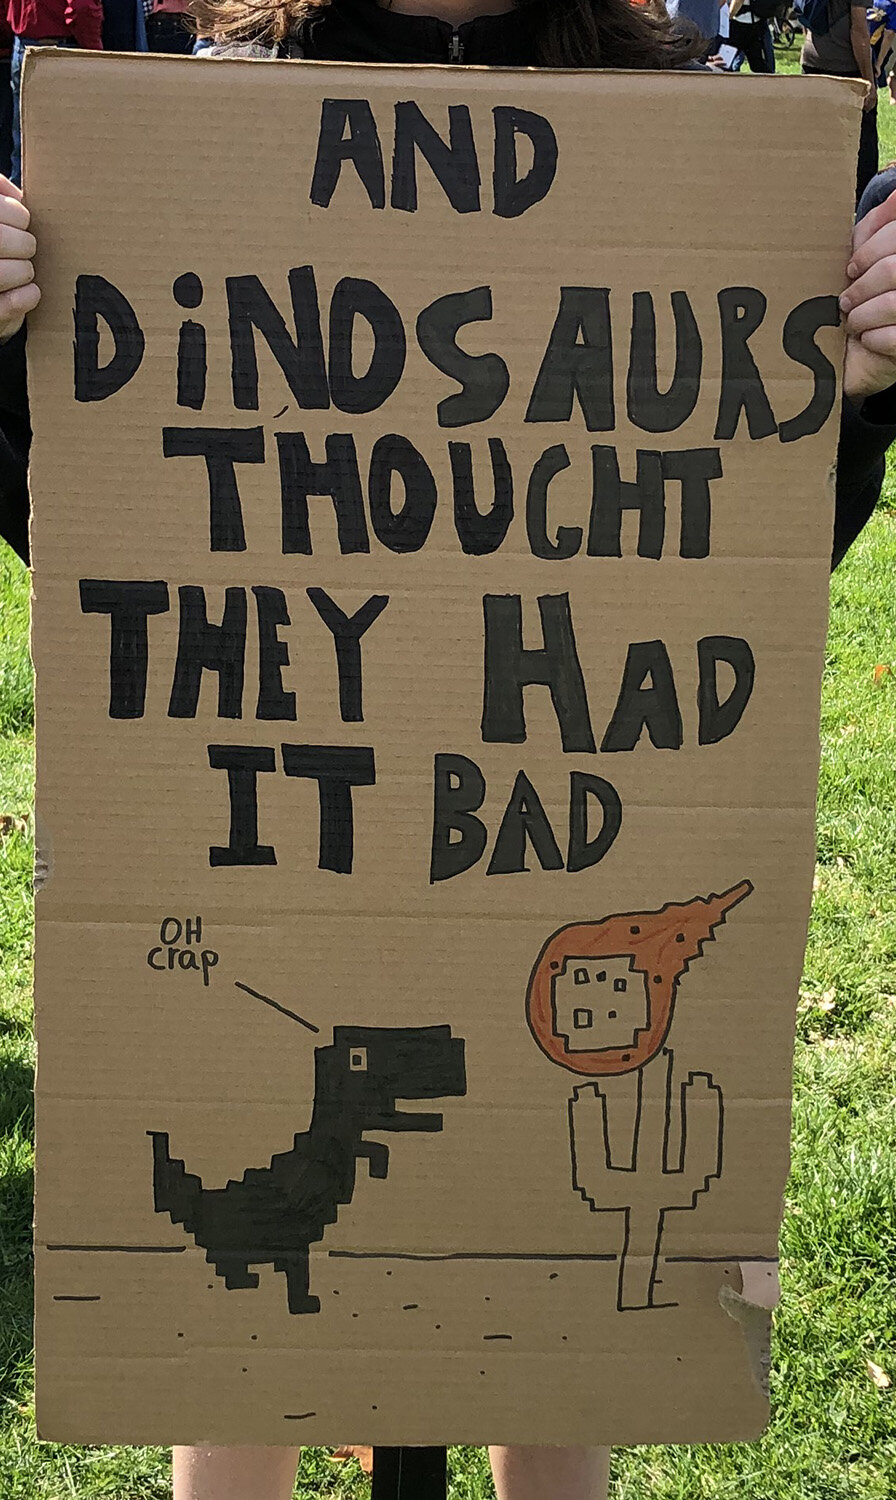 AND
DiNOSAURS
THOUGHT
THEY HAD
IT BAD
OH
crap